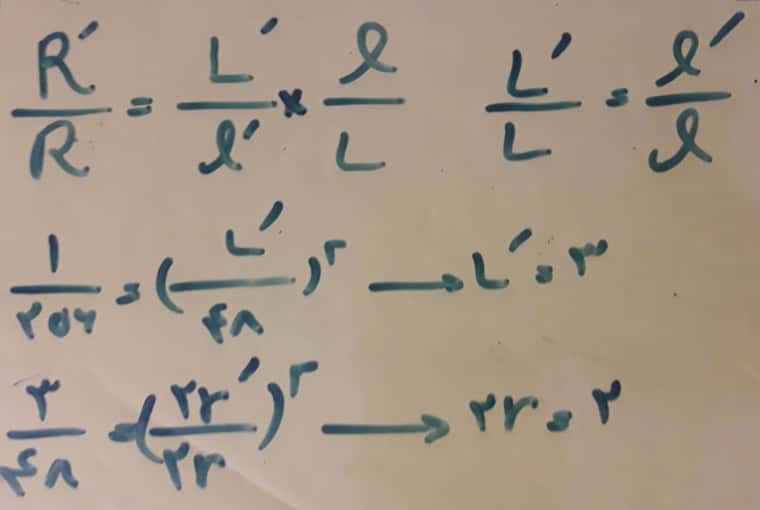 R′/R = L′/ℓ′ × ℓ/L    L′/L = ℓ′/ℓ
۱/۲۵۶ = (L′/۴۸)^۲ → L′ = ۳
۳/۴۸ = (۲r′/۲r)^۲ → ۲r = ۲